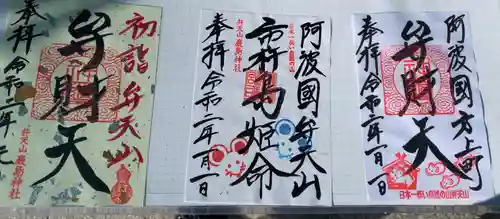 初詣弁天山
弁財天
奉拝令和二年元
弁天山厳島神社
阿波國弁天山
日本一低い弁天山
市杵島姫命
弁天山厳島神社
奉拝令和二年一月一日
阿波國方上町
弁財天
奉拝令和二年一月一日
日本一低い自然の山弁天山